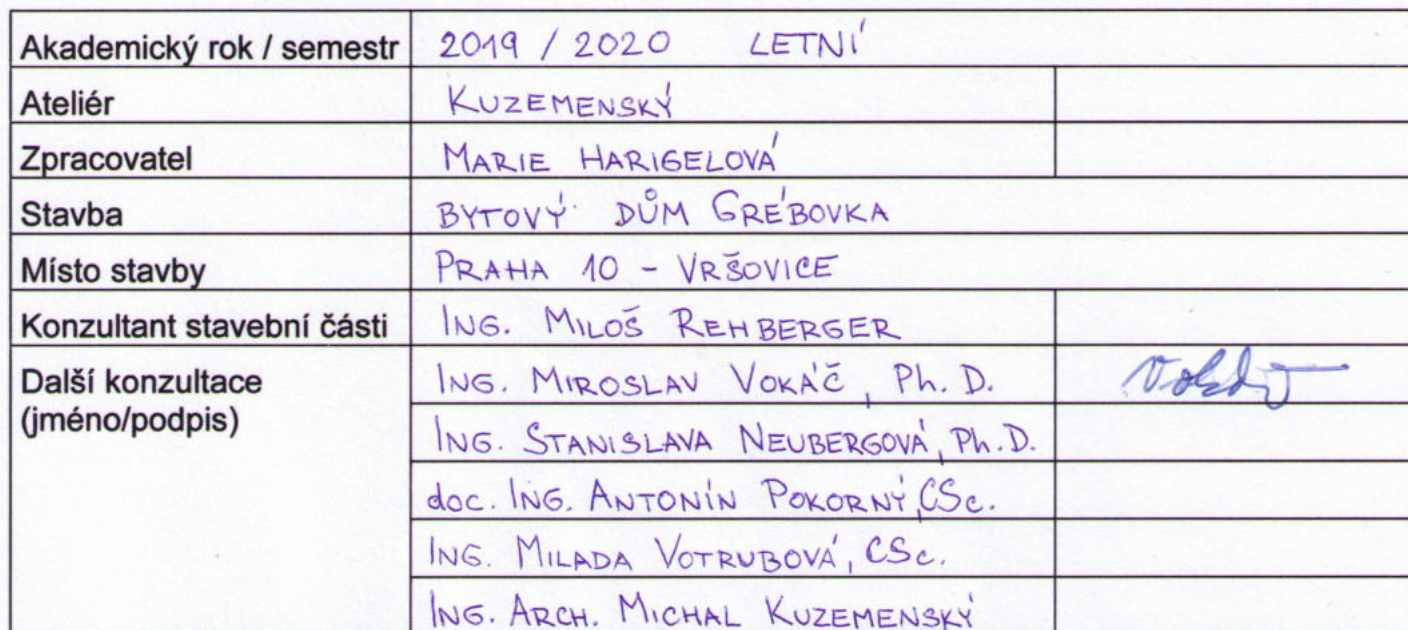 Akademický rok / semestr 2019 / 2020 LETNÍ
Ateliér KUZEMENSKÝ
Zpracovatel MARIE HARIGELOVÁ
Stavba BYTOVÝ DŮM GRÉBOVKA
Místo stavby PRAHA 10 - VRŠOVICE
Konzultant stavební části ING. MILOŠ REHBERGER
Další konzultace ING. MIROSLAV VOKÁČ, Ph. D.
(jméno/podpis) ING. STANISLAVA NEUBERGOVÁ, Ph.D.
doc. ING. ANTONÍN POKORNÝ, CSc.
ING. MILADA VOTRUBOVÁ, CSc.
ING. ARCH. MICHAL KUZEMENSKÝ